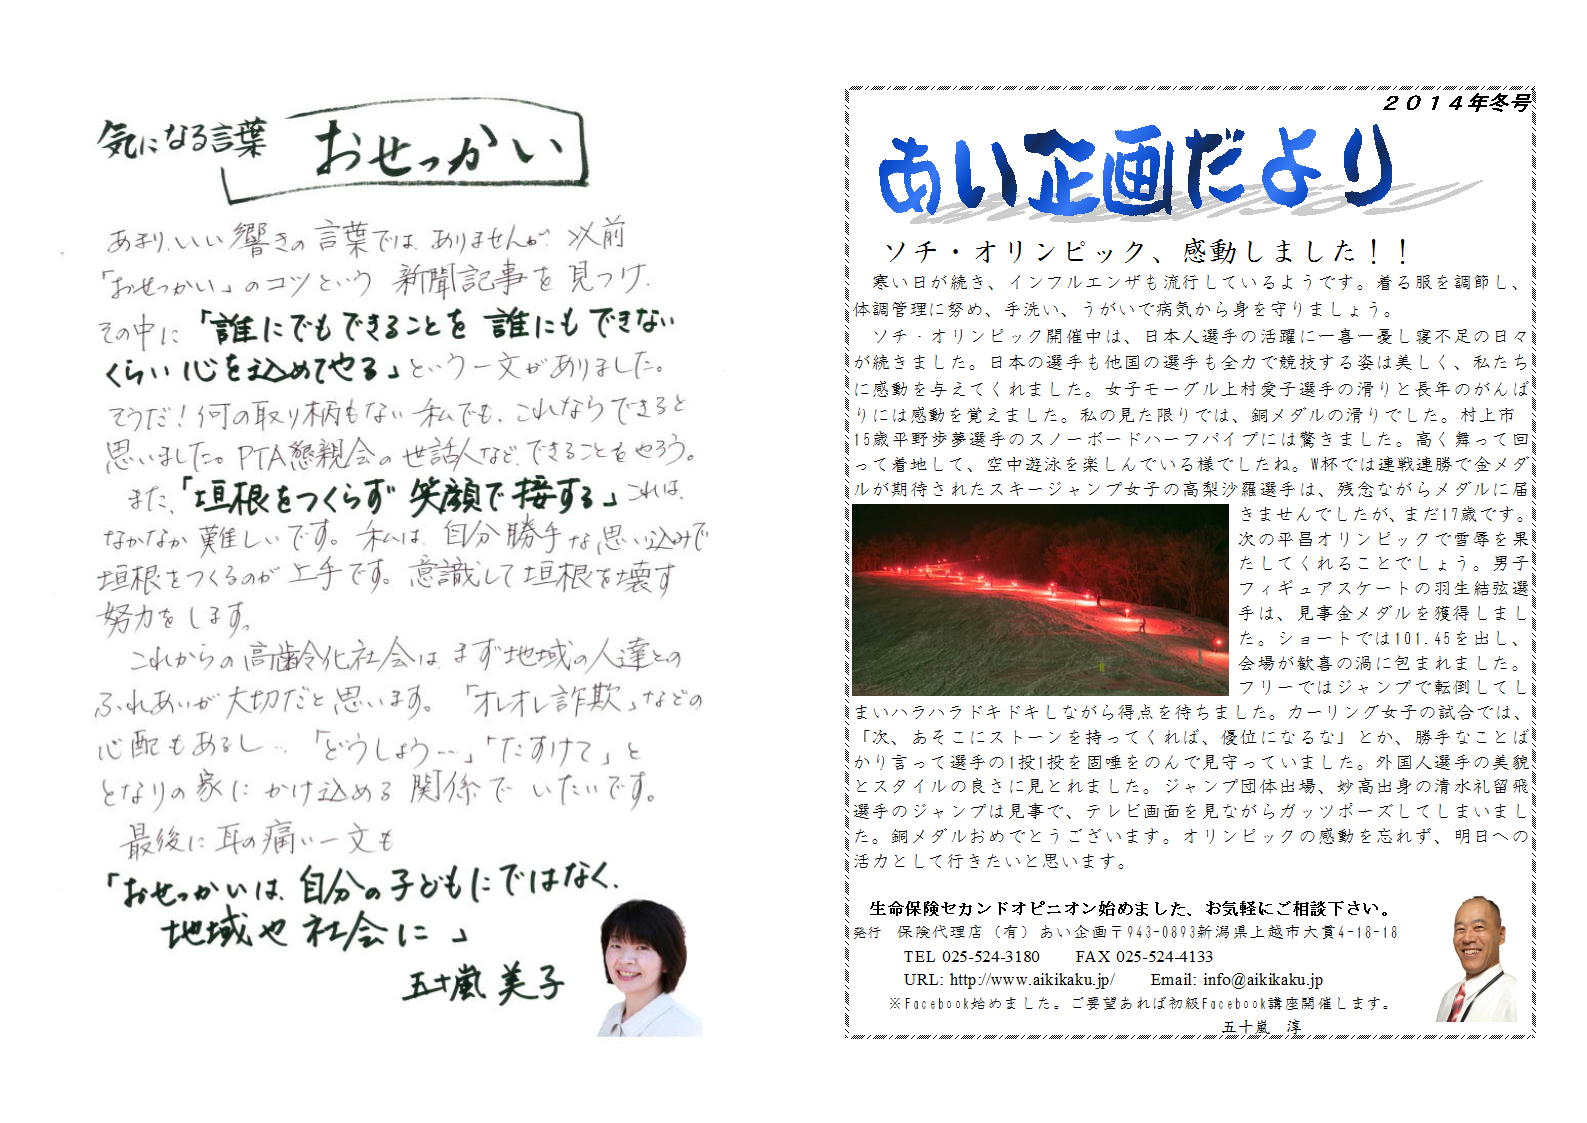 気になる言葉 おせっかい
あまり、いい響きの言葉では、ありませんが、以前
「おせっかい」のコツという 新聞記事を見つけ、
その中に「誰にでもできることを 誰にもできない
くらい心を込めてやる」という一文がありました。
そうだ！何の取り柄もない私でも、これならできると
思いました。PTA懇親会の世話人など、できることをやろう。
また、「垣根をつくらず 笑顔で接する」これは、
なかなか難しいです。私は、自分勝手な思い込みで
垣根をつくるのが上手です。意識して垣根を壊す
努力をします。
これからの高齢化社会は、まず地域の人達との
ふれあいが大切だと思います。「オレオレ詐欺」などの
心配もあるし…「どうしよう…」「たすけて」と
となりの家にかけ込める関係でいたいです。
最後に耳の痛い一文も
「おせっかいは、自分の子どもにではなく、
地域や社会に」
五十嵐 美子
２０１４年冬号
あい企画だより
ソチ・オリンピック、感動しました！！
寒い日が続き、インフルエンザも流行しているようです。着る服を調節し、
体調管理に努め、手洗い、うがいで病気から身を守りましょう。
ソチ・オリンピック開催中は、日本人選手の活躍に一喜一憂し寝不足の日々
が続きました。日本の選手も他国の選手も全力で競技する姿は美しく、私たち
に感動を与えてくれました。女子モーグル上村愛子選手の滑りと長年のがんば
りには感動を覚えました。私の見た限りでは、銅メダルの滑りでした。村上市
15歳平野歩夢選手のスノーボードハーフパイプには驚きました。高く舞って回
って着地して、空中遊泳を楽しんでいる様でしたね。W杯では連戦連勝で金メダ
ルが期待されたスキージャンプ女子の高梨沙羅選手は、残念ながらメダルに届
きませんでしたが、まだ17歳です。
次の平昌オリンピックで雪辱を果
たしてくれることでしょう。男子
フィギュアスケートの羽生結弦選
手は、見事金メダルを獲得しまし
た。ショートでは101.45を出し、
会場が歓喜の渦に包まれました。
フリーではジャンプで転倒してし
まいハラハラドキドキしながら得点を待ちました。カーリング女子の試合では、
「次、あそこにストーンを持ってくれば、優位になるな」とか、勝手なことば
かり言って選手の1投1投を固唾をのんで見守っていました。外国人選手の美貌
とスタイルの良さに見とれました。ジャンプ団体出場、妙高出身の清水礼留飛
選手のジャンプは見事で、テレビ画面を見ながらガッツポーズしてしまいまし
た。銅メダルおめでとうございます。オリンピックの感動を忘れず、明日への
活力として行きたいと思います。
生命保険セカンドオピニオン始めました、お気軽にご相談下さい。
発行 保険代理店（有）あい企画〒943-0893新潟県上越市大貫4-18-18
TEL 025-524-3180 FAX 025-524-4133
URL: http://www.aikikaku.jp/ Email: info@aikikaku.jp
※Facebook始めました。ご要望あれば初級Facebook講座開催します。
五十嵐 淳